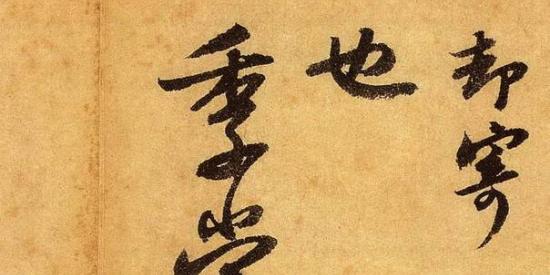 却寄
也
季常